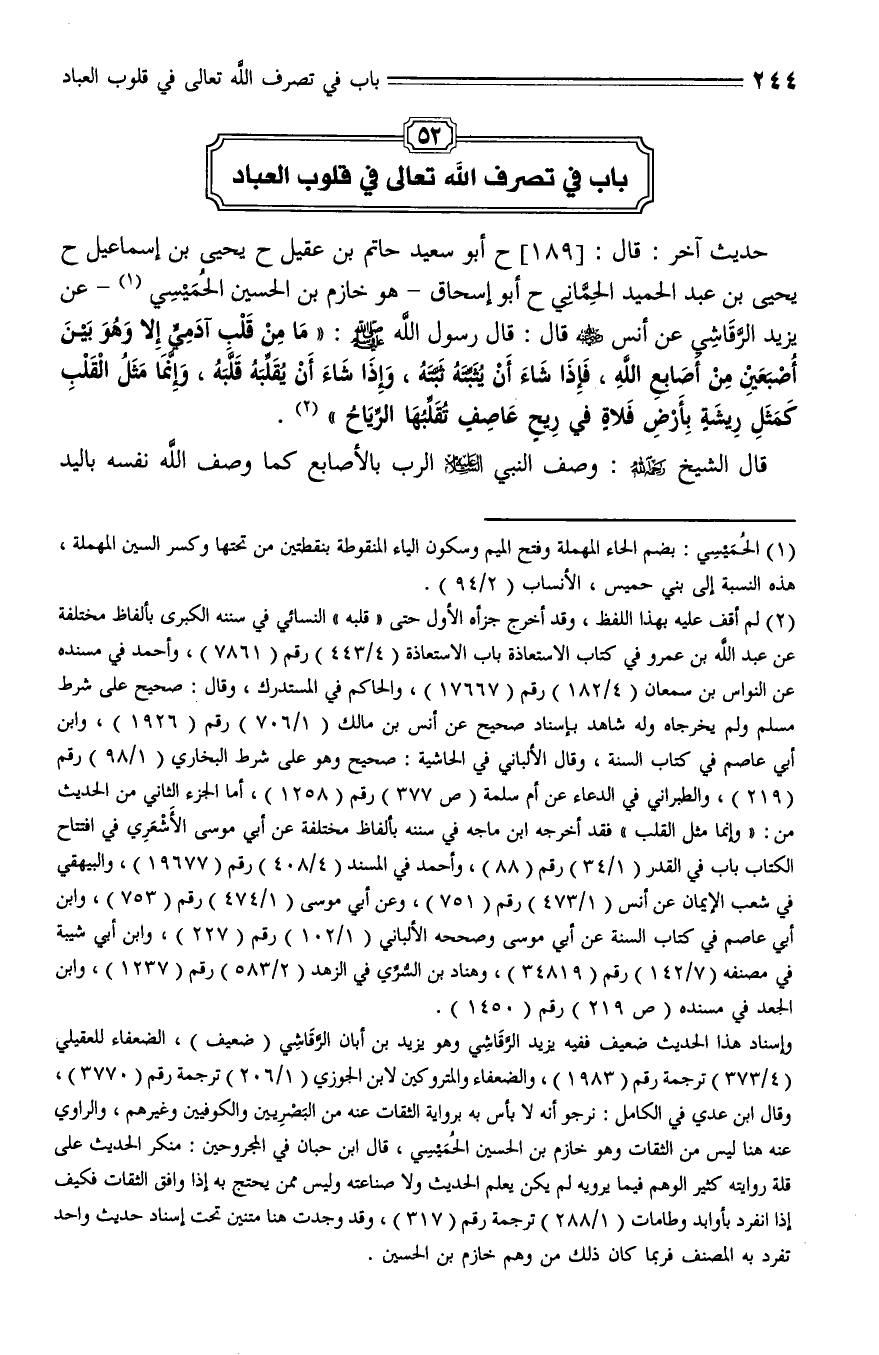 ٢٤٤ باب في تصرف اللَّه تعالى في قلوب العباد
٥٢
باب في تصرف الله تعالى في قلوب العباد
حديث آخر : قال : [١٨٩] ح أبو سعيد حاتم بن عقيل ح يحيى بن إسماعيل ح
يحيى بن عبد الحميد الحِمَّاني ح أبو إسحاق – هو خازم بن الحسين الحُمَيْسِي (١) – عن
يزيد الرَّقَاشِي عن أنس ﵁ قال : قال رسول اللَّه ﷺ : « مَا مِنْ قَلْبِ آدَمِيٍّ إِلا وَهُوَ بَيْنَ
أُصْبَعَيْنِ مِنْ أَصَابِعِ اللَّهِ ، فَإِذَا شَاءَ أَنْ يُثَبِّتَهُ ثَبَّتَهُ ، وَإِذَا شَاءَ أَنْ يُقَلِّبَهُ قَلَّبَهُ ، وَإِنَّمَا مَثَلُ الْقَلْبِ
كَمَثَلِ رِيشَةٍ بِأَرْضٍ فَلاةٍ في رِيحٍ عَاصِفٍ تُقَلِّبُهَا الرِّيَاحُ » (٢) .
قال الشيخ ﵀ : وصف النبي ﵇ الرب بالأصابع كما وصف اللَّه نفسه باليد
(١) الحُمَيْسِي : بضم الحاء المهملة وفتح الميم وسكون الياء المنقوطة بنقطتين من تحتها وكسر السين المهملة ،
هذه النسبة إلى بني حميس ، الأنساب ( ٩٤/٢ ) .
(٢) لم أقف عليه بهذا اللفظ ، وقد أخرج جزأه الأول حتى « قلبه » النسائي في سننه الكبرى بألفاظ مختلفة
عن عبد اللَّه بن عمرو في كتاب الاستعاذة باب الاستعاذة ( ٤٤٣/٤ ) رقم ( ٧٨٦١ ) ، وأحمد في مسنده
عن النواس بن سمعان ( ١٨٢/٤ ) رقم ( ١٧٦٦٧ ) ، والحاكم في المستدرك ، وقال : صحيح على شرط
مسلم ولم يخرجاه وله شاهد بإسناد صحيح عن أنس بن مالك ( ٧٠٦/١ ) رقم ( ١٩٢٦ ) ، وابن
أبي عاصم في كتاب السنة ، وقال الألباني في الحاشية : صحيح وهو على شرط البخاري ( ٩٨/١ ) رقم
( ٢١٩ ) ، والطبراني في الدعاء عن أم سلمة ( ص ٣٧٧ ) رقم ( ١٢٥٨ ) ، أما الجزء الثاني من الحديث
من : « وإنما مثل القلب » فقد أخرجه ابن ماجه في سننه بألفاظ مختلفة عن أبي موسى الأَشْعَرِي في افتتاح
الكتاب باب في القدر ( ٣٤/١ ) رقم ( ٨٨ ) ، وأحمد في المسند ( ٤٠٨/٤ ) رقم ( ١٩٦٧٧ ) ، والبيهقي
في شعب الإيمان عن أنس ( ٤٧٣/١ ) رقم ( ٧٥١ ) ، وعن أبي موسى ( ٤٧٤/١ ) رقم ( ٧٥٣ ) ، وابن
أبي عاصم في كتاب السنة عن أبي موسى وصححه الألباني ( ١٠٢/١ ) رقم ( ٢٢٧ ) ، وابن أبي شيبة
في مصنفه ( ١٤٢/٧ ) رقم ( ٣٤٨١٩ ) ، وهناد بن السُّرِّي في الزهد ( ٥٨٣/٢ ) رقم ( ١٢٣٧ ) ، وابن
الجعد في مسنده ( ص ٢١٩ ) رقم ( ١٤٥٠ ) .
وإسناد هذا الحديث ضعيف ففيه يزيد الرَّقَاشِي وهو يزيد بن أبان الرَّقَاشِي ( ضعيف ) ، الضعفاء للعقيلي
( ٣٧٣/٤ ) ترجمة رقم ( ١٩٨٣ ) ، والضعفاء والمتروكين لابن الجوزي ( ٢٠٦/١ ) ترجمة رقم ( ٣٧٧٠ ) ،
وقال ابن عدي في الكامل : نرجو أنه لا بأس به برواية الثقات عنه من البَصْرِيين والكوفيين وغيرهم ، والراوي
عنه هنا ليس من الثقات وهو خازم بن الحسين الحُمَيْسِي ، قال ابن حبان في المجروحين : منكر الحديث على
قلة روايته كثير الوهم فيما يرويه لم يكن يعلم الحديث ولا صناعته وليس ممن يحتج به إذا وافق الثقات فكيف
إذا انفرد بأوابد وطامات ( ٢٨٨/١ ) ترجمة رقم ( ٣١٧ ) ، وقد وجدت هنا متنين تحت إسناد حديث واحد
تفرد به المصنف فربما كان ذلك من وهم خازم بن الحسين .